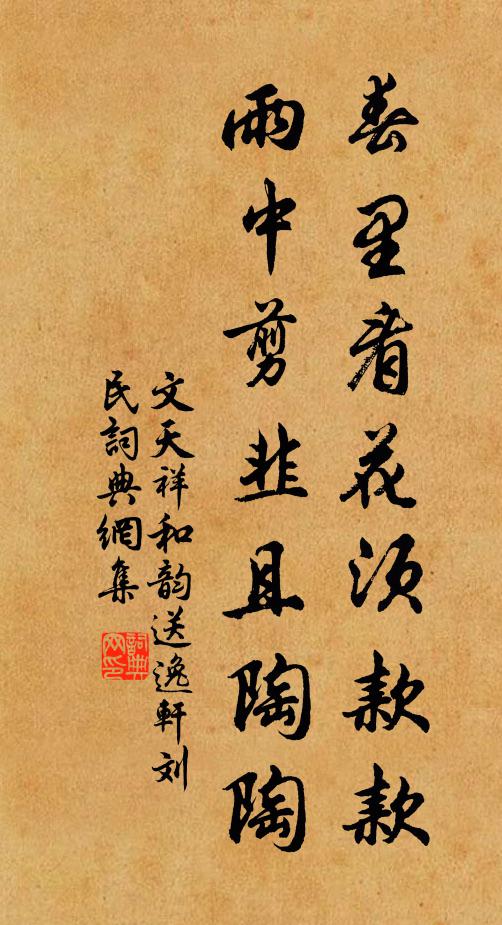 春里看花须款款
雨中剪韭且陶陶
文天祥和韵送逸軒刘
民詞典網集
詞典
网印